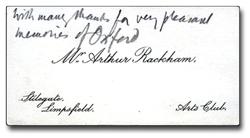 With many thanks for very pleasant
memories of Oxford
Mr. Arthur Rackham.
Stilegate,
Limpsfield.
Arts Club.